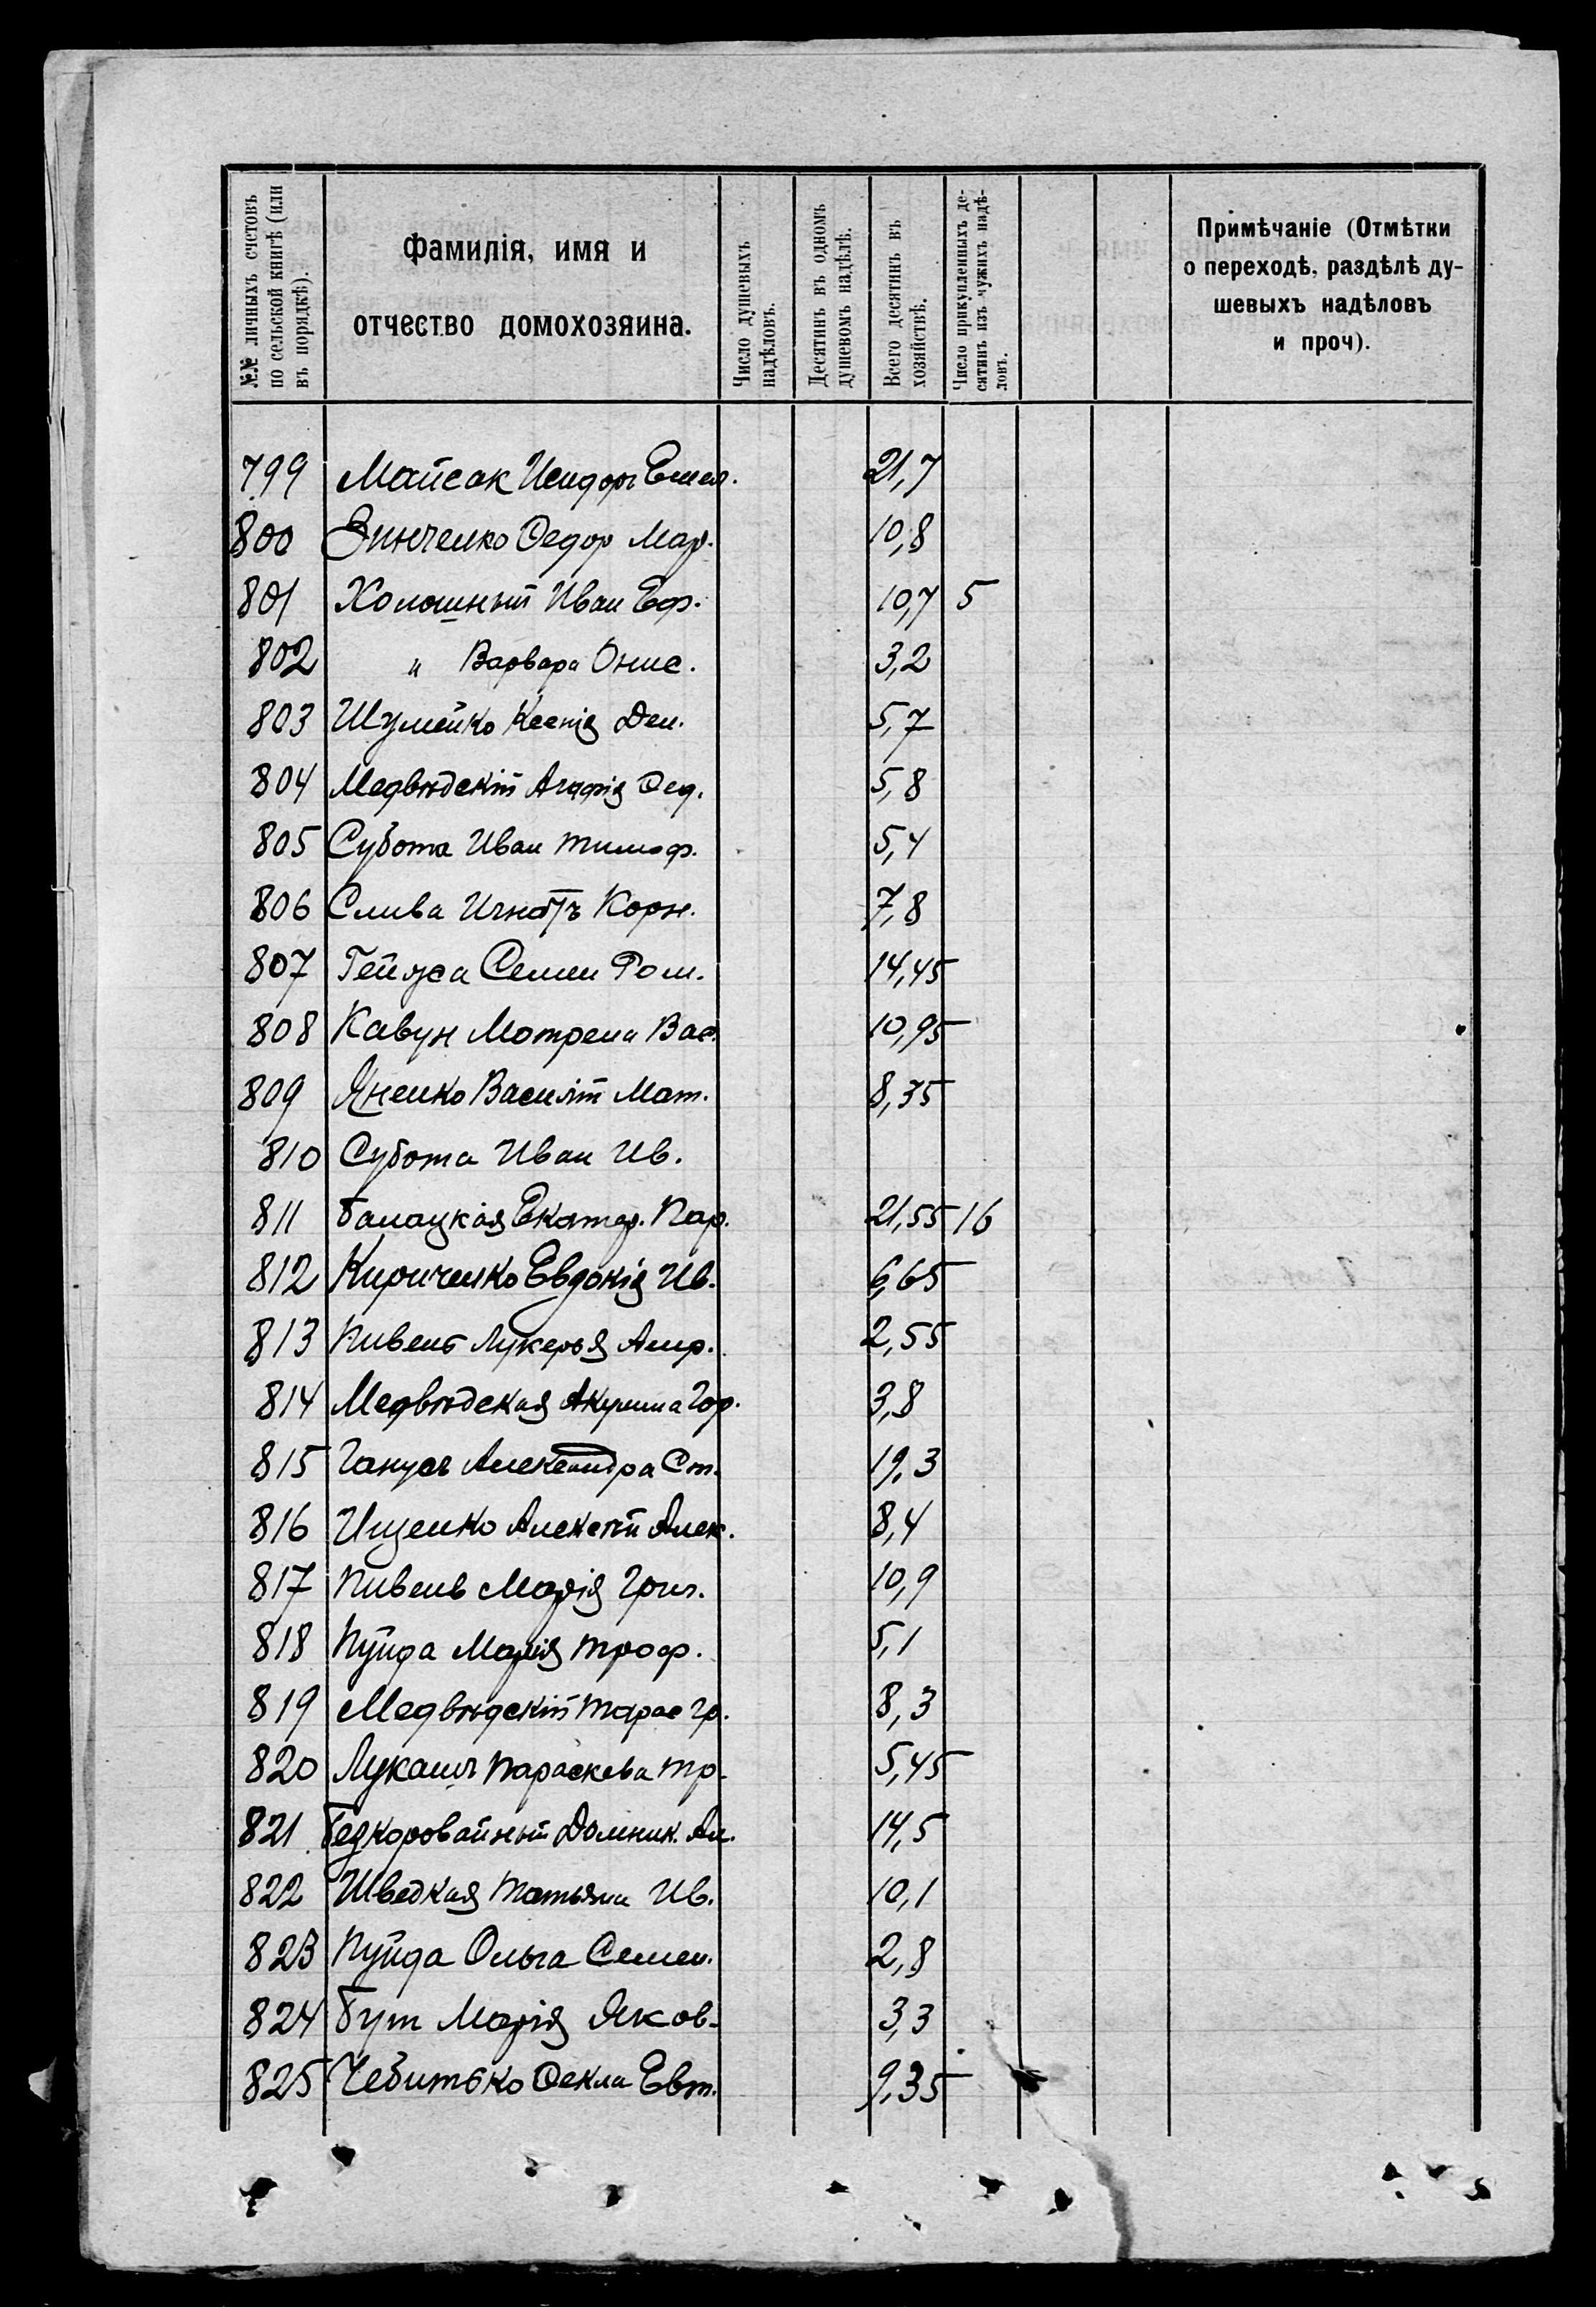 №№ личныхъ счетовъ
по сельской книгѣ (или
въ порядкѣ).
Фамилія, имя и
отчество домохозяина.
Число душевыхъ
надѣловъ.
Десятинъ въ одномъ
душевомъ надѣлѣ.
Всего десятинъ въ
хозяйствѣ.
Число прикупленныхъ де-
сятинъ изъ чужихъ надѣ-
ловъ.
Примѣчаніе (Отмѣтки
о переходѣ, раздѣлѣ ду-
шевыхъ надѣловъ
и проч).
799 Майсак Исидоръ Емел. 21,7
800 Зинченко Федор Мар. 10,8
801 Холошный Иван Еф. 10,7 5
802 " Варвара Онис. 3,2
803 Шумейко Ксенія Дем. 5,7
804 Медвѣдскій Агафія Фед. 5,8
805 Субота Иван Тимоф. 5,4
806 Слива Игнатъ Корн. 7,8
807 Гейжа Семен Ром. 14,45
808 Кавун Мотрена Вас. 10,95
809 Яненко Василій Мат. 8,35
810 Субота Иван Ив.
811 Балацкая Екатер. Пар. 21,55 16
812 Кириченко Евдокія Ив. 6,65
813 Пивень Лукерья Амр. 2,55
814 Медвѣдская Акулина Гор. 3,8
815 Ганусъ Александра Ст. 19,3
816 Ищенко Алексѣй Алек. 8,4
817 Пивень Марія Григ. 10,9
818 Пуйда Марія Троф. 5,1
819 Медвѣдскій Тарас Гр. 8,3
820 Лукашъ Параскева Тр. 5,45
821 Безкоровайный Домник. Ан. 14,5
822 Шведкая Татьяна Ив. 10,1
823 Пуйда Ольга Семен. 2,8
824 Бут Марія Яков. 3,3
825 Чебитько Фекла Евт. 9,35